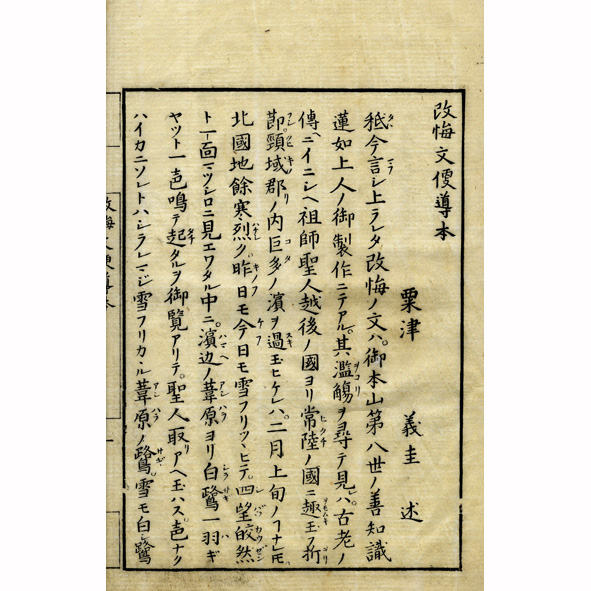 改悔文便導本
粟津 義圭 述
秖今言シ上ラレタ改悔ノ文ハ。御本山第八世ノ善知識
蓮如上人ノ御製作ニテアル。其濫觴ヲ尋テ見レハ。古老ノ
傳ヘニイニシヘ祖師聖人越後ノ國ヨリ常陸ノ國ニ趣玉フ折
節。頸城郡ノ内巨多ノ濱ヲ過玉ヒケレハ。二月上旬ノ
北國地餘寒烈ク。昨日モ今日モ雪フリツヽヒテ。四望皎然
ト一面マツシロニ見エワタル中ニ。濱辺ノ葦原ヨリ白鷺一羽ギ
ヤツト一声鳴テ起タルヲ御覽アリテ。聖人取リアヘ玉ハス。声ナク
ハイカニソレトハシラレマジ雪フリカヽル葦原ノ鷺。雪モ白シ鷺
改悔文便導本